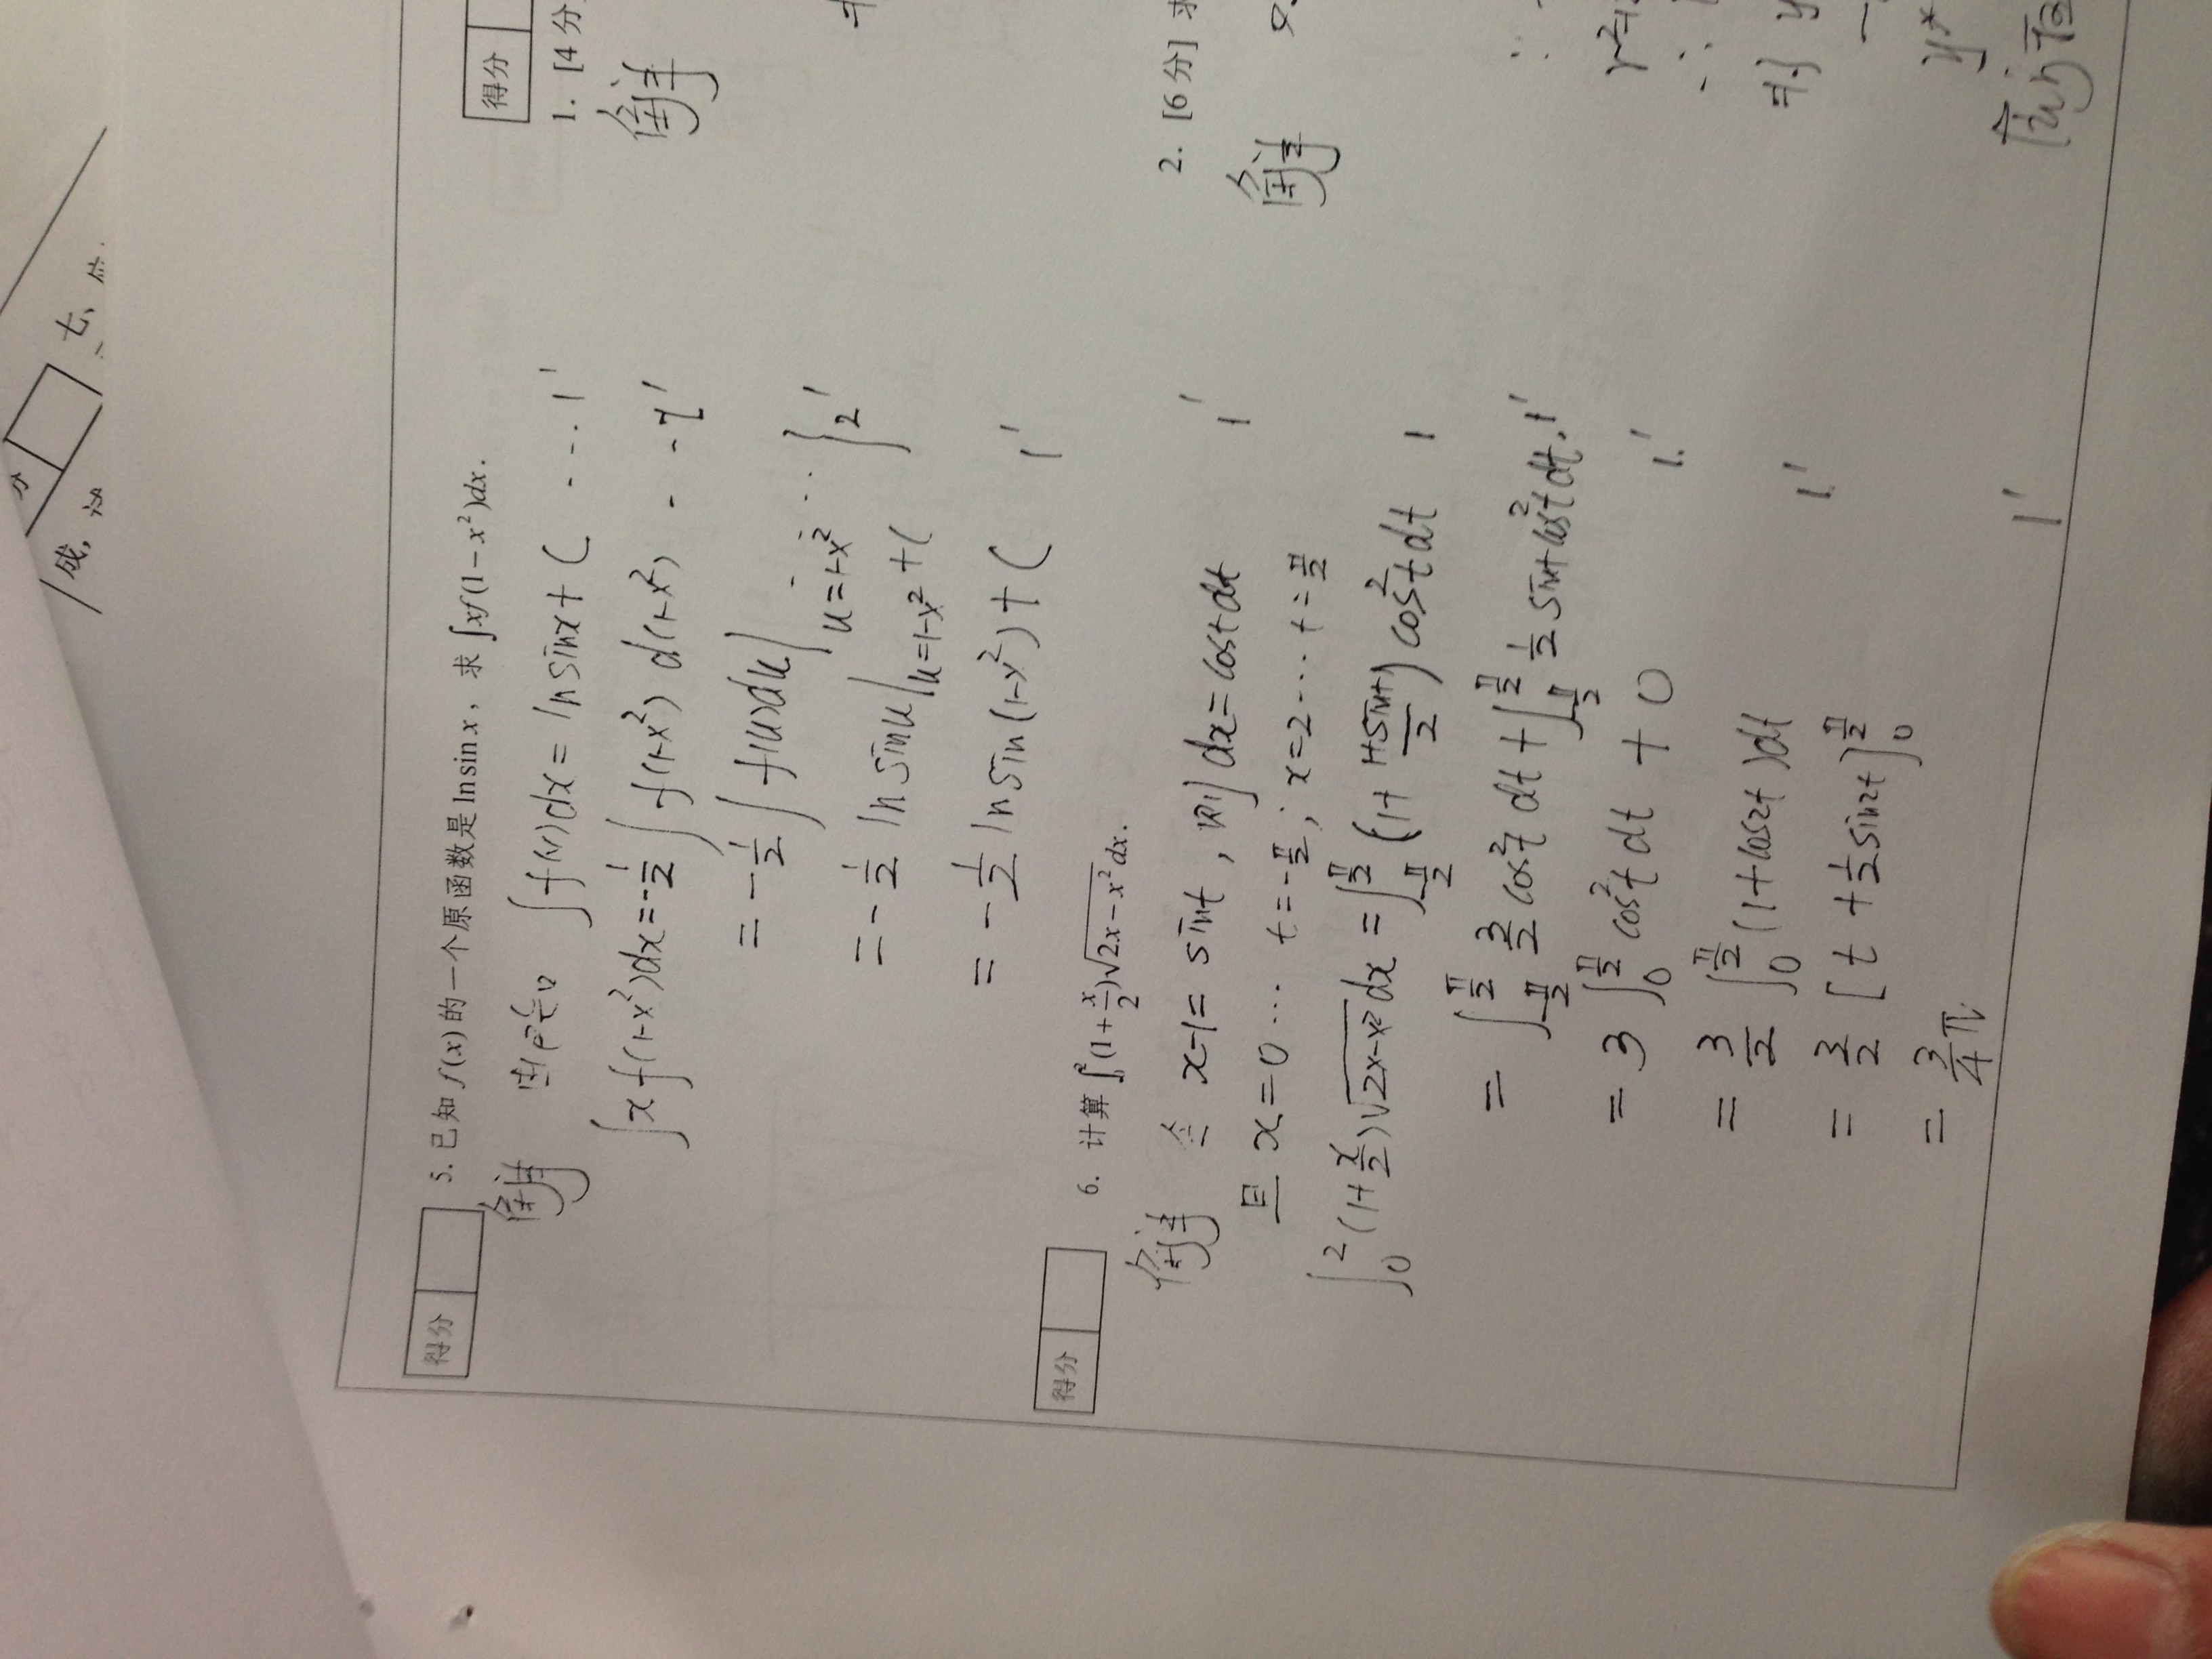 分
成,
七、
得分
5. 已知 f(x) 的一个原函数是 ln sin x，求 ∫xf(1−x²)dx.
解 由已知 ∫f(x)dx = ln sinx + C ... 1'
∫x f(1-x²)dx = -1/2 ∫ f(1-x²) d(1-x²) - - 2'
= -1/2 ∫ f(u)du |u=1-x² ....
= -1/2 ln sinu |u=1-x² + C } 2'
= -1/2 ln sin(1-x²) + C 1'
得分
6. 计算 ∫₀²(1+x/2)√(2x−x²)dx.
解 令 x-1 = sint, 则 dx = cost dt 1'
且 x=0 ... t=-π/2; x=2 ... t=π/2
∫₀²(1+x/2)√(2x-x²)dx = ∫_{-π/2}^{π/2} (1+(1+sint)/2) cos²t dt 1
= ∫_{-π/2}^{π/2} 3/2 cos²t dt + ∫_{-π/2}^{π/2} 1/2 sint cos²t dt. 1'
= 3 ∫₀^{π/2} cos²t dt + 0 1.'
= 3/2 ∫₀^{π/2} (1+cos2t)dt 1.'
= 3/2 [t + 1/2 sin2t]₀^{π/2}
= 3/4 π.
1'
得分
1. [4 分
解
2. [6 分] 求
解
∵
∴
y*